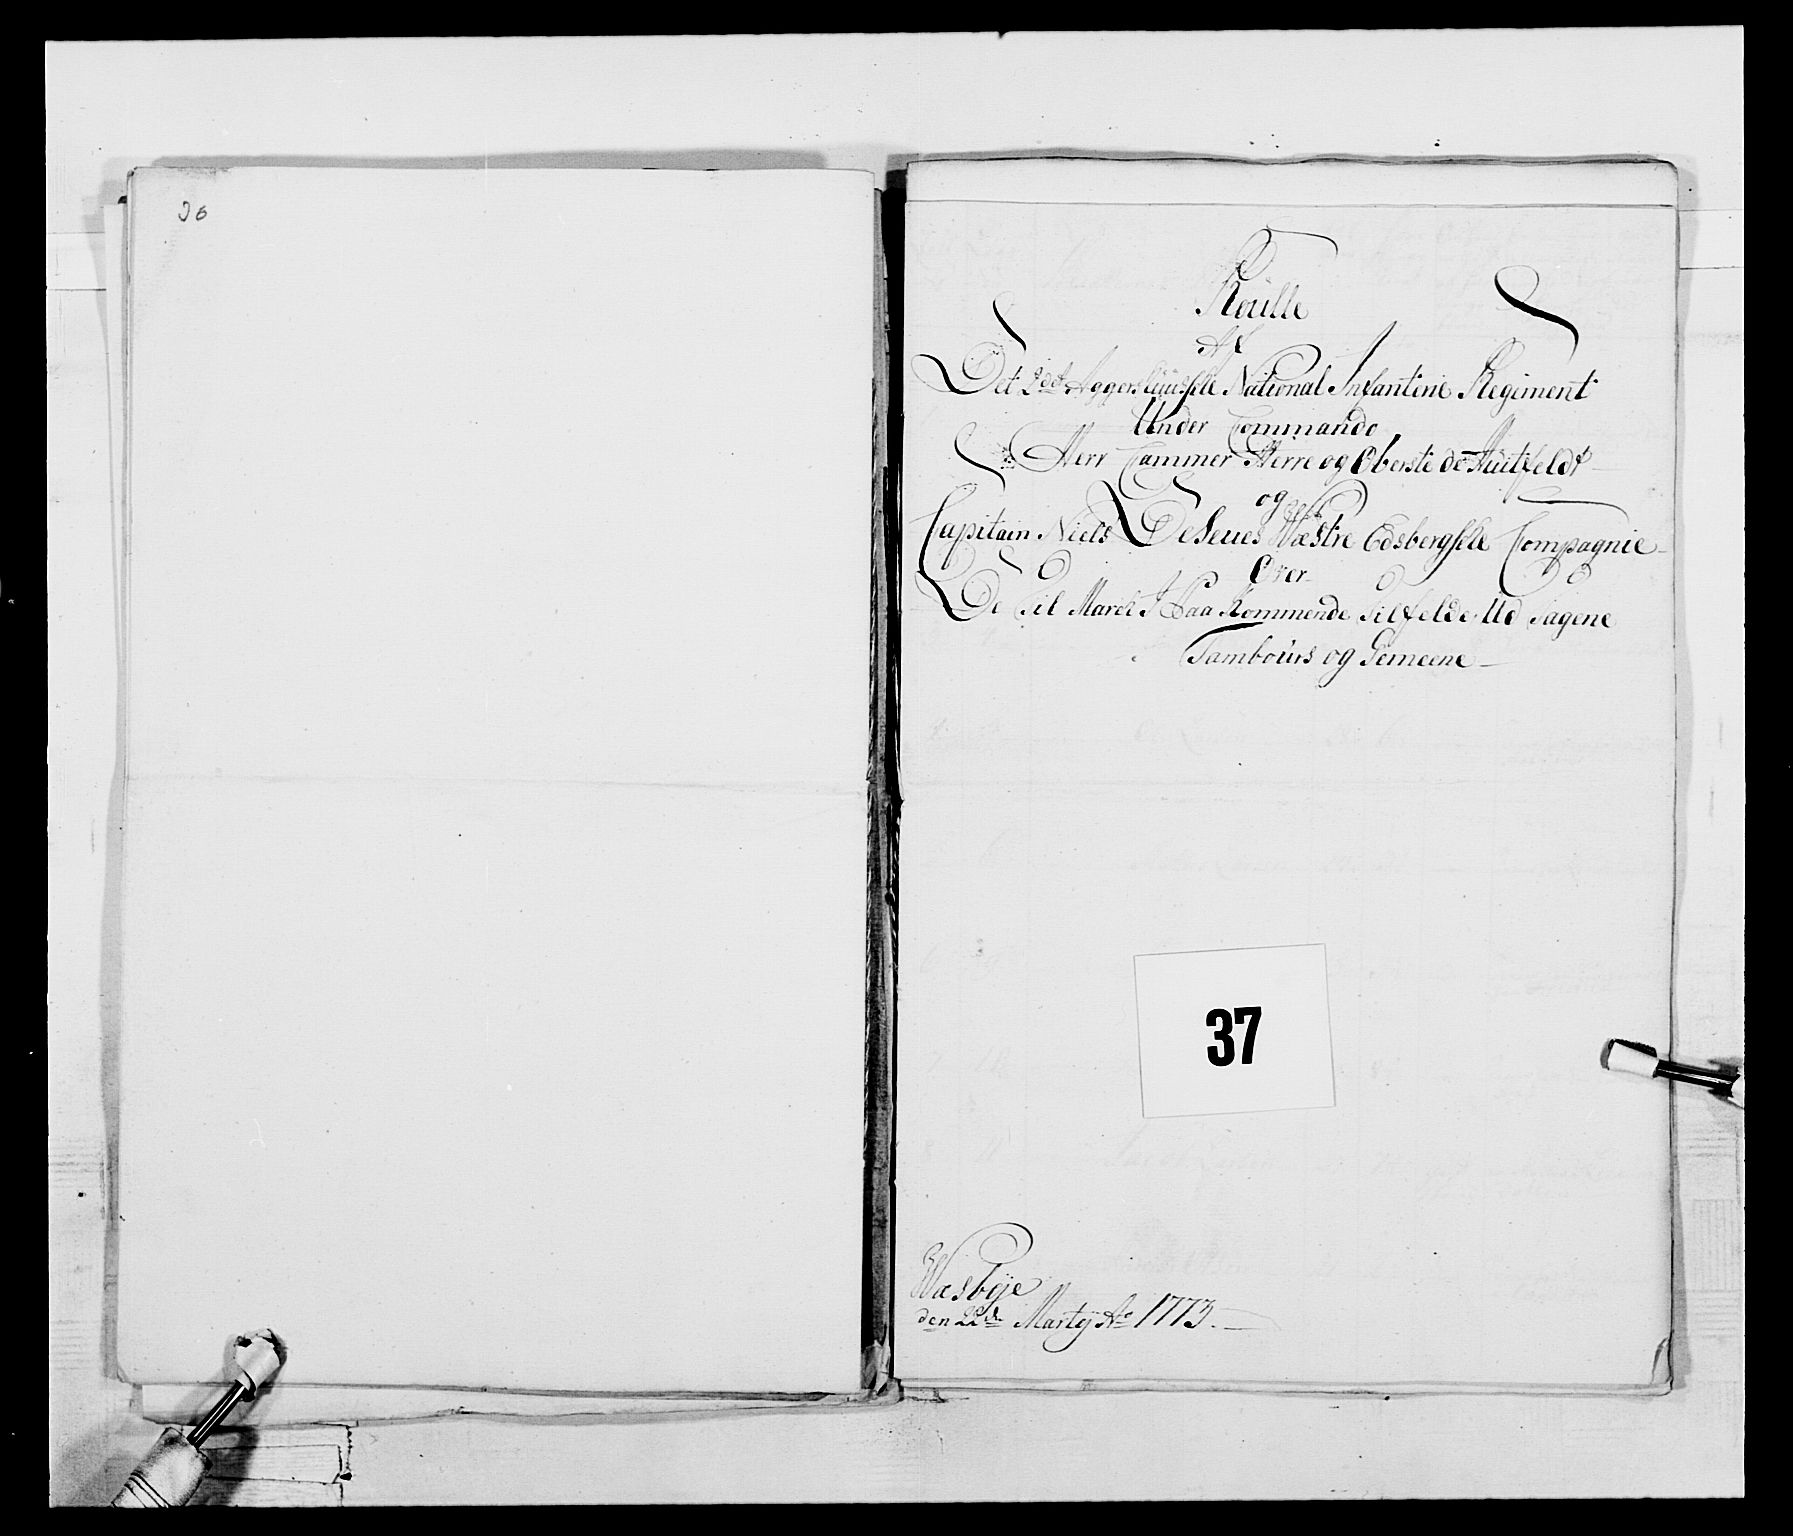 36
Roülle
Af
Det 2det Aggershüüsiske National Infanterie Regiment
Under Commando
Herr Cammer Herre og Oberste de Huitfeldt
og
Capitain Niels De Seues Wæstre Edsbergske Compagnie
Over
De Til March I Paa Kommende Tilfelde Ud Tagene
Tambours og Gemeene
37
Wæsbye
den 22de Martij Ao 1773.